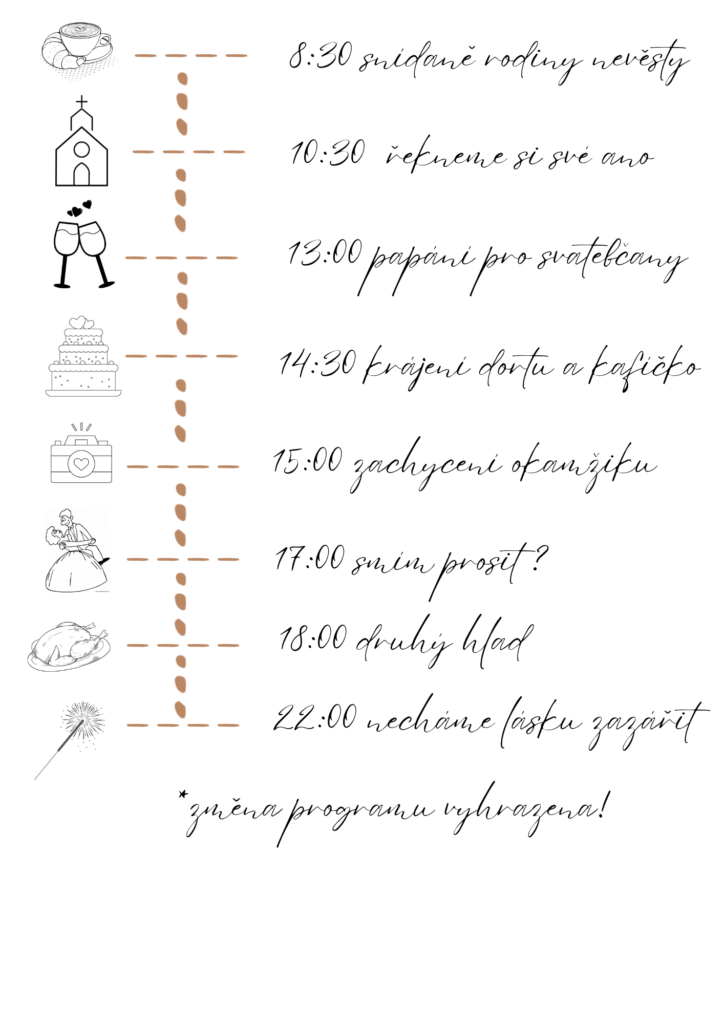 8:30 snídaně rodiny nevěsty
10:30 řekneme si své ano
13:00 papání pro svatebčany
14:30 krájení dortu a kafíčko
15:00 zachycení okamžiku
17:00 smím prosit?
18:00 druhý hlad
22:00 necháme lásku zazářit
*změna programu vyhrazena!